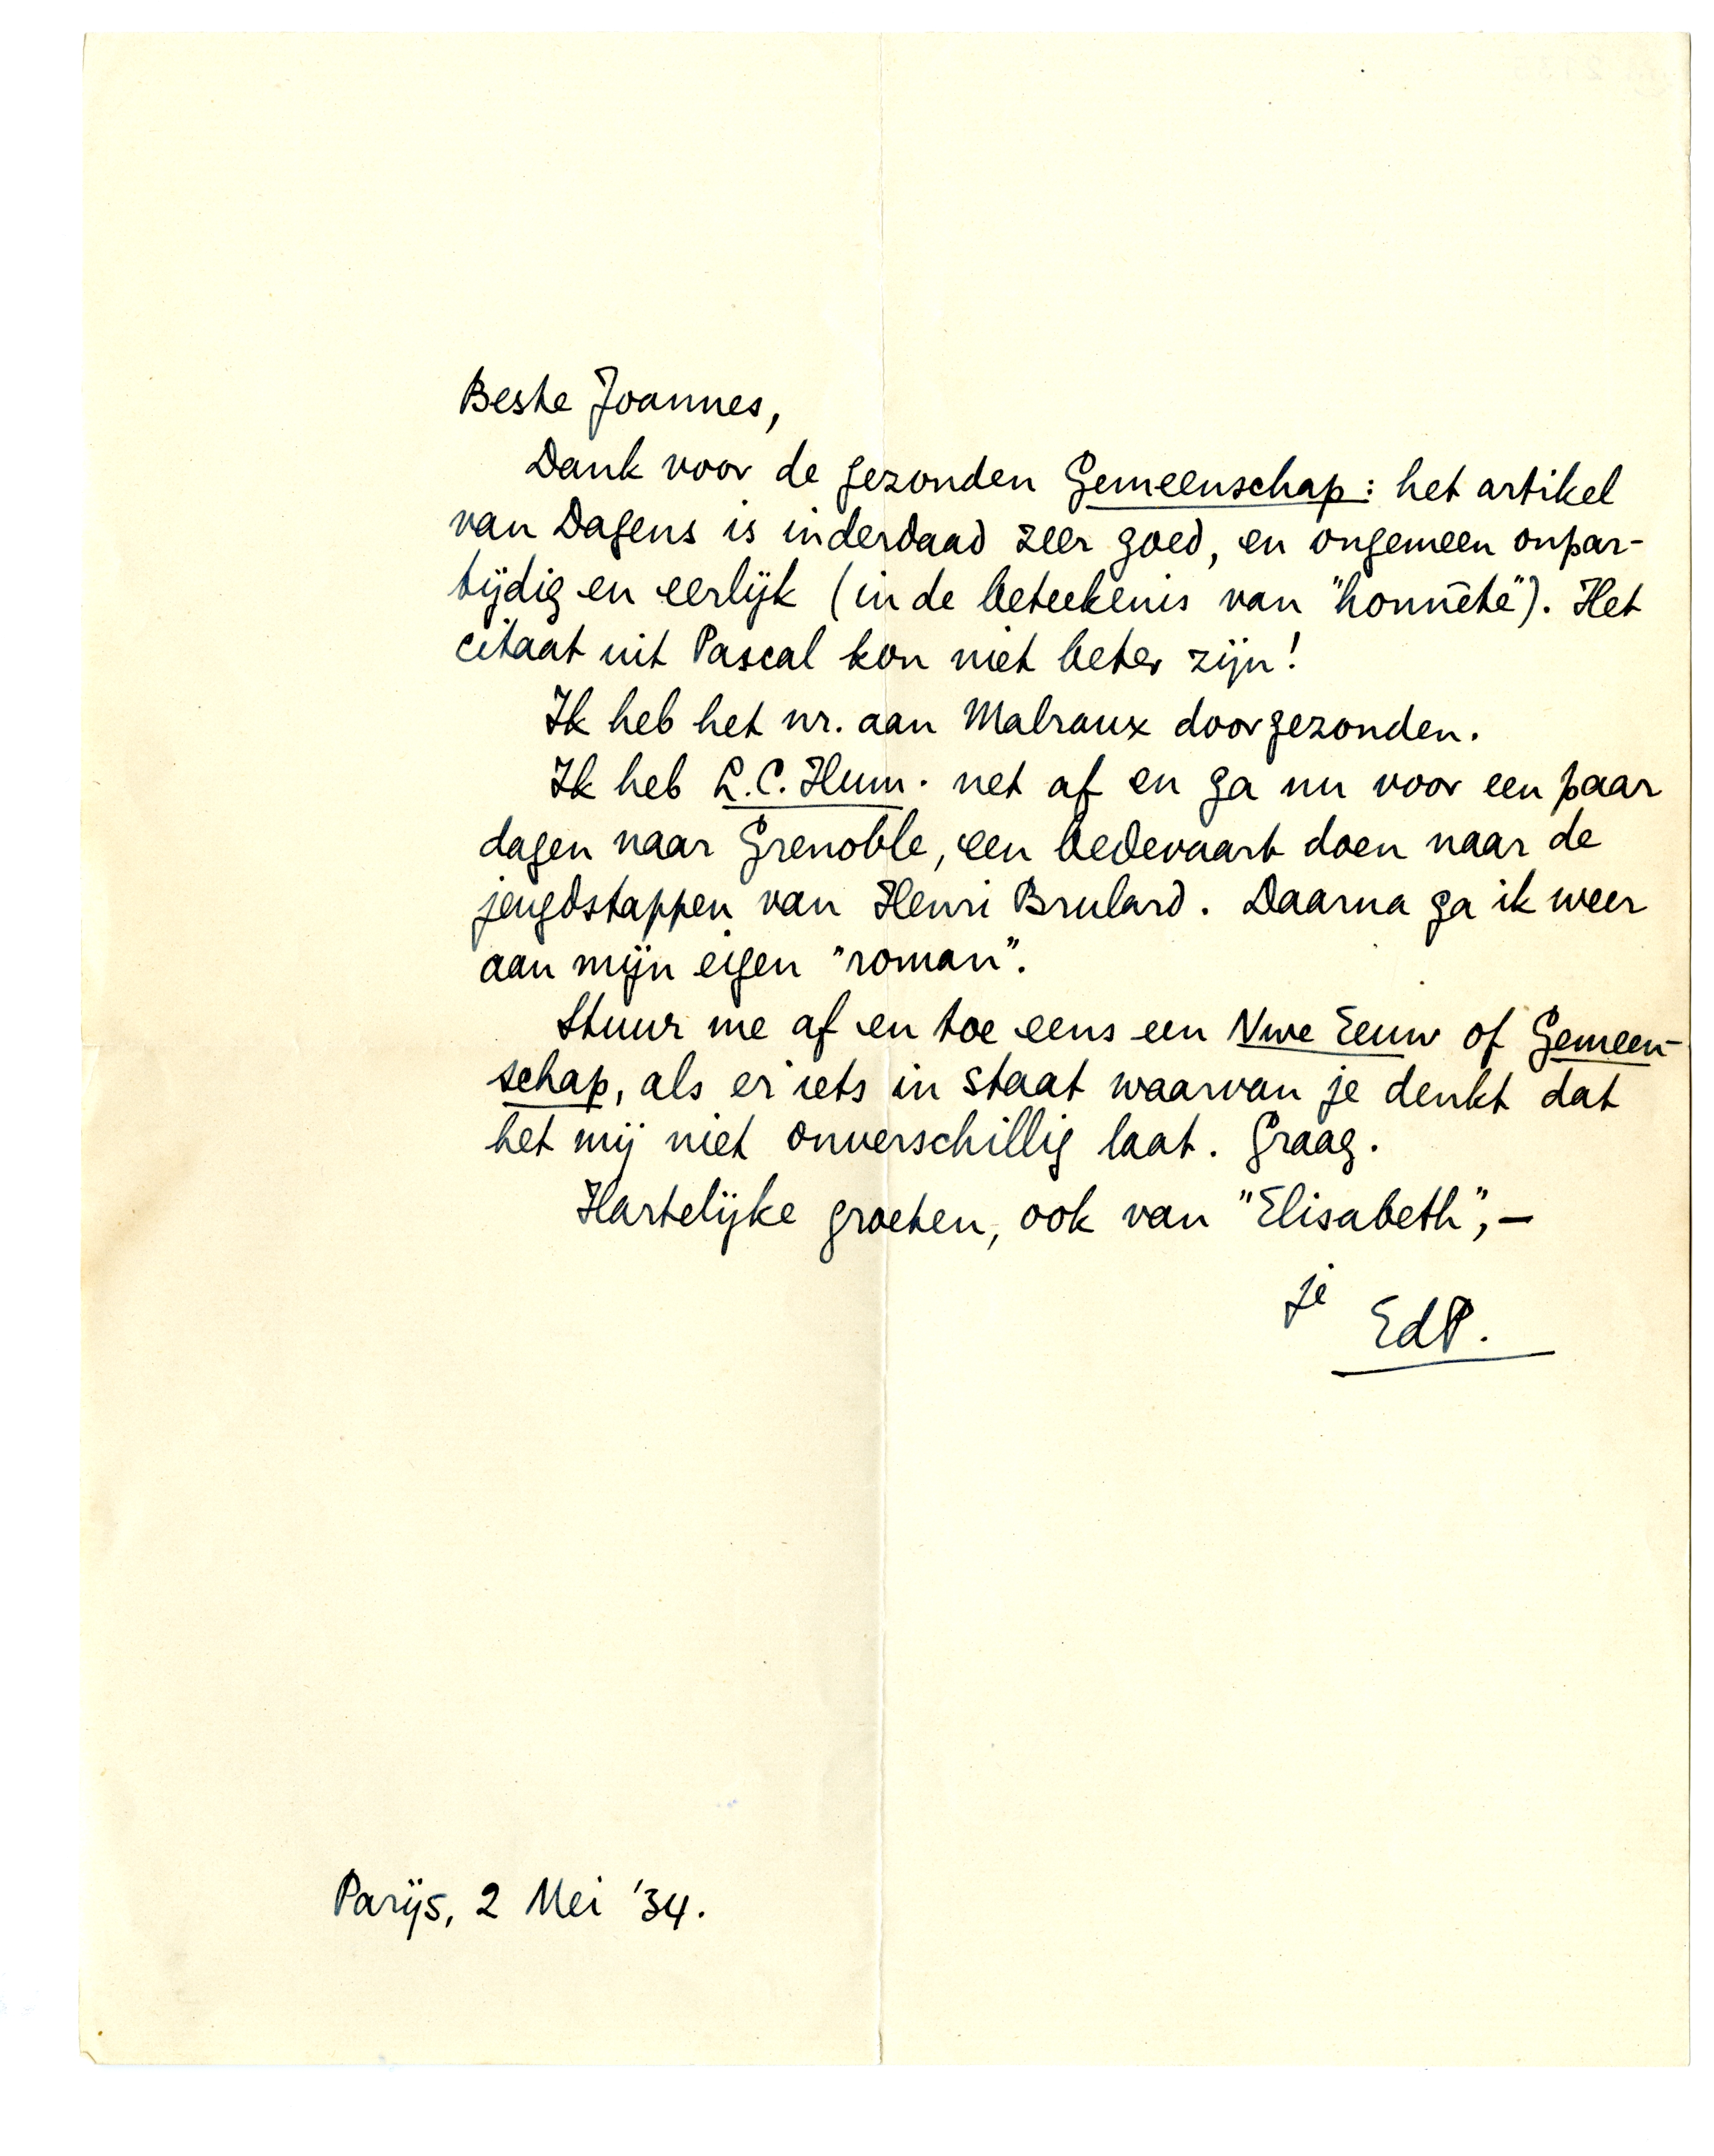 Beste Joannes,
Dank voor de gezonden Gemeenschap: het artikel
van Dagens is inderdaad zeer goed, en ongemeen onpar-
tijdig en eerlijk (in de beteekenis van "honnête"). Het
citaat uit Pascal kon niet beter zijn!
Ik heb het nr. aan Malraux doorgezonden.
Ik heb L.C. Hum. net af en ga nu voor een paar
dagen naar Grenoble, een bedevaart doen naar de
jeugdstappen van Henri Brulard. Daarna ga ik weer
aan mijn eigen "roman".
Stuur me af en toe eens een Nwe Eeuw of Gemeen-
schap, als er iets in staat waarvan je denkt dat
het mij niet onverschillig laat. Graag.
Hartelijke groeten, ook van "Elisabeth", –
je
EdP.
Parijs, 2 Mei '34.